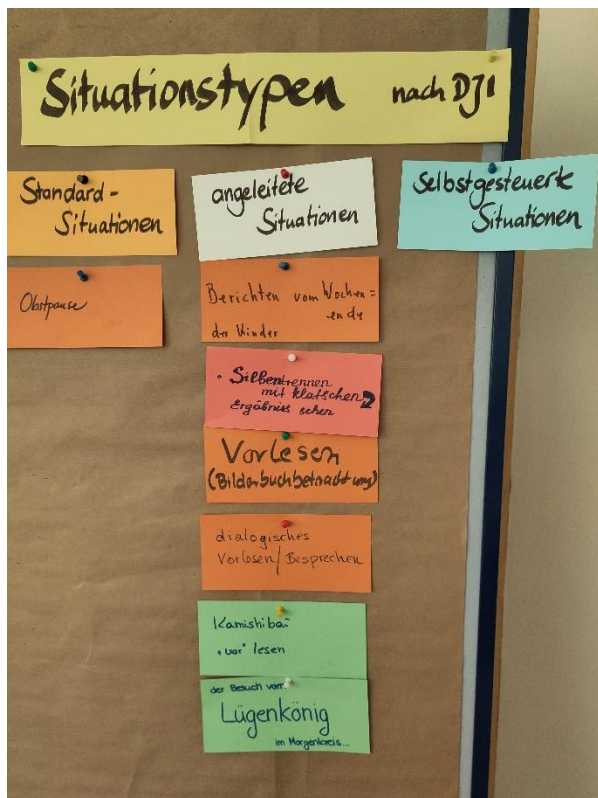 Situationstypen nach DJI
Standard-
Situationen
angeleitete
Situationen
Selbstgesteuerte
Situationen
Obstpause
Berichten vom Wochen=
ende
der Kinder
• Silbentrennen
mit klatschen
Ergebniss sehen
Vorlesen
(Bilderbuchbetrachtung)
dialogisches
Vorlesen/Besprechen
Kamishibai
"vor" lesen
der Besuch vom
Lügenkönig
im Morgenkreis...